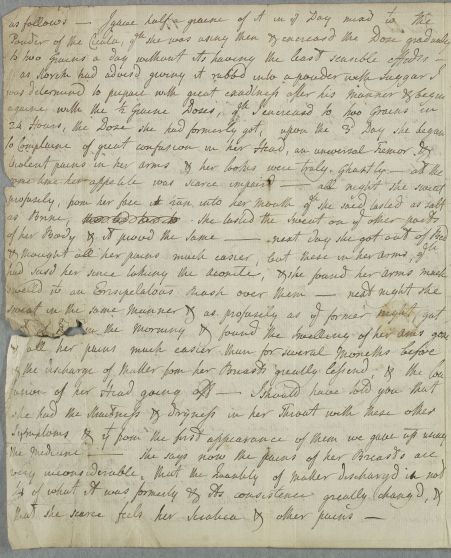 as follows — I gave half a graine of it in ye Day mixd in the
Powder of the Cicuta, qch she was using then & encreasd the Dose gradually
to two Graines a day without its having the least sensible effects —
as Storke had advisd giving it rubbd into a powder with Suggar I
was determind to prepare with great exactness after his manner & began
againe with the ½ Graine Doses, qch I encreased to two Grains in
24 Hours, the Dose she had formerly got, upon the 3d Day she began
to Complaine of great confusion in her Head, an universal Tremor, &
violent pains in her arms & her looks were truly Ghastly — at the
same time her appetite was scarce impaird — all night she sweat
profusely, from her face it ran into her Mouth qch she said tasted as salt
as Brine, she tasted the Sweat on ye other parts
of her Body & it proved the same — next day she got out of Bed
& thought all her pains much easier, but these in her arms, qch
had seasd her since taking the aconite, & she found her arms much
swelld with an Erisipelatous Rash over them — next night she
sweat in the same manner & as profusely as ye former night, got
in the Morning & found the swelling of her arms gone
& all her pains much easier than for several Months before
& the discharge of Matter from her Breasts greatly lessend, & the con
fusion of her Head going off — I should have told you that
she had the Smartness & dryness in her Throat with these other
Symptoms & yt from the first appearance of them we gave up using
the medicine — She says now the pains of her Breasts are
very inconsiderable, that the Quantity of matter dischargd is not
¼ of what it was formerly & its consistence greatly changd, &
that she scarce feels her Sciatica & other pains —